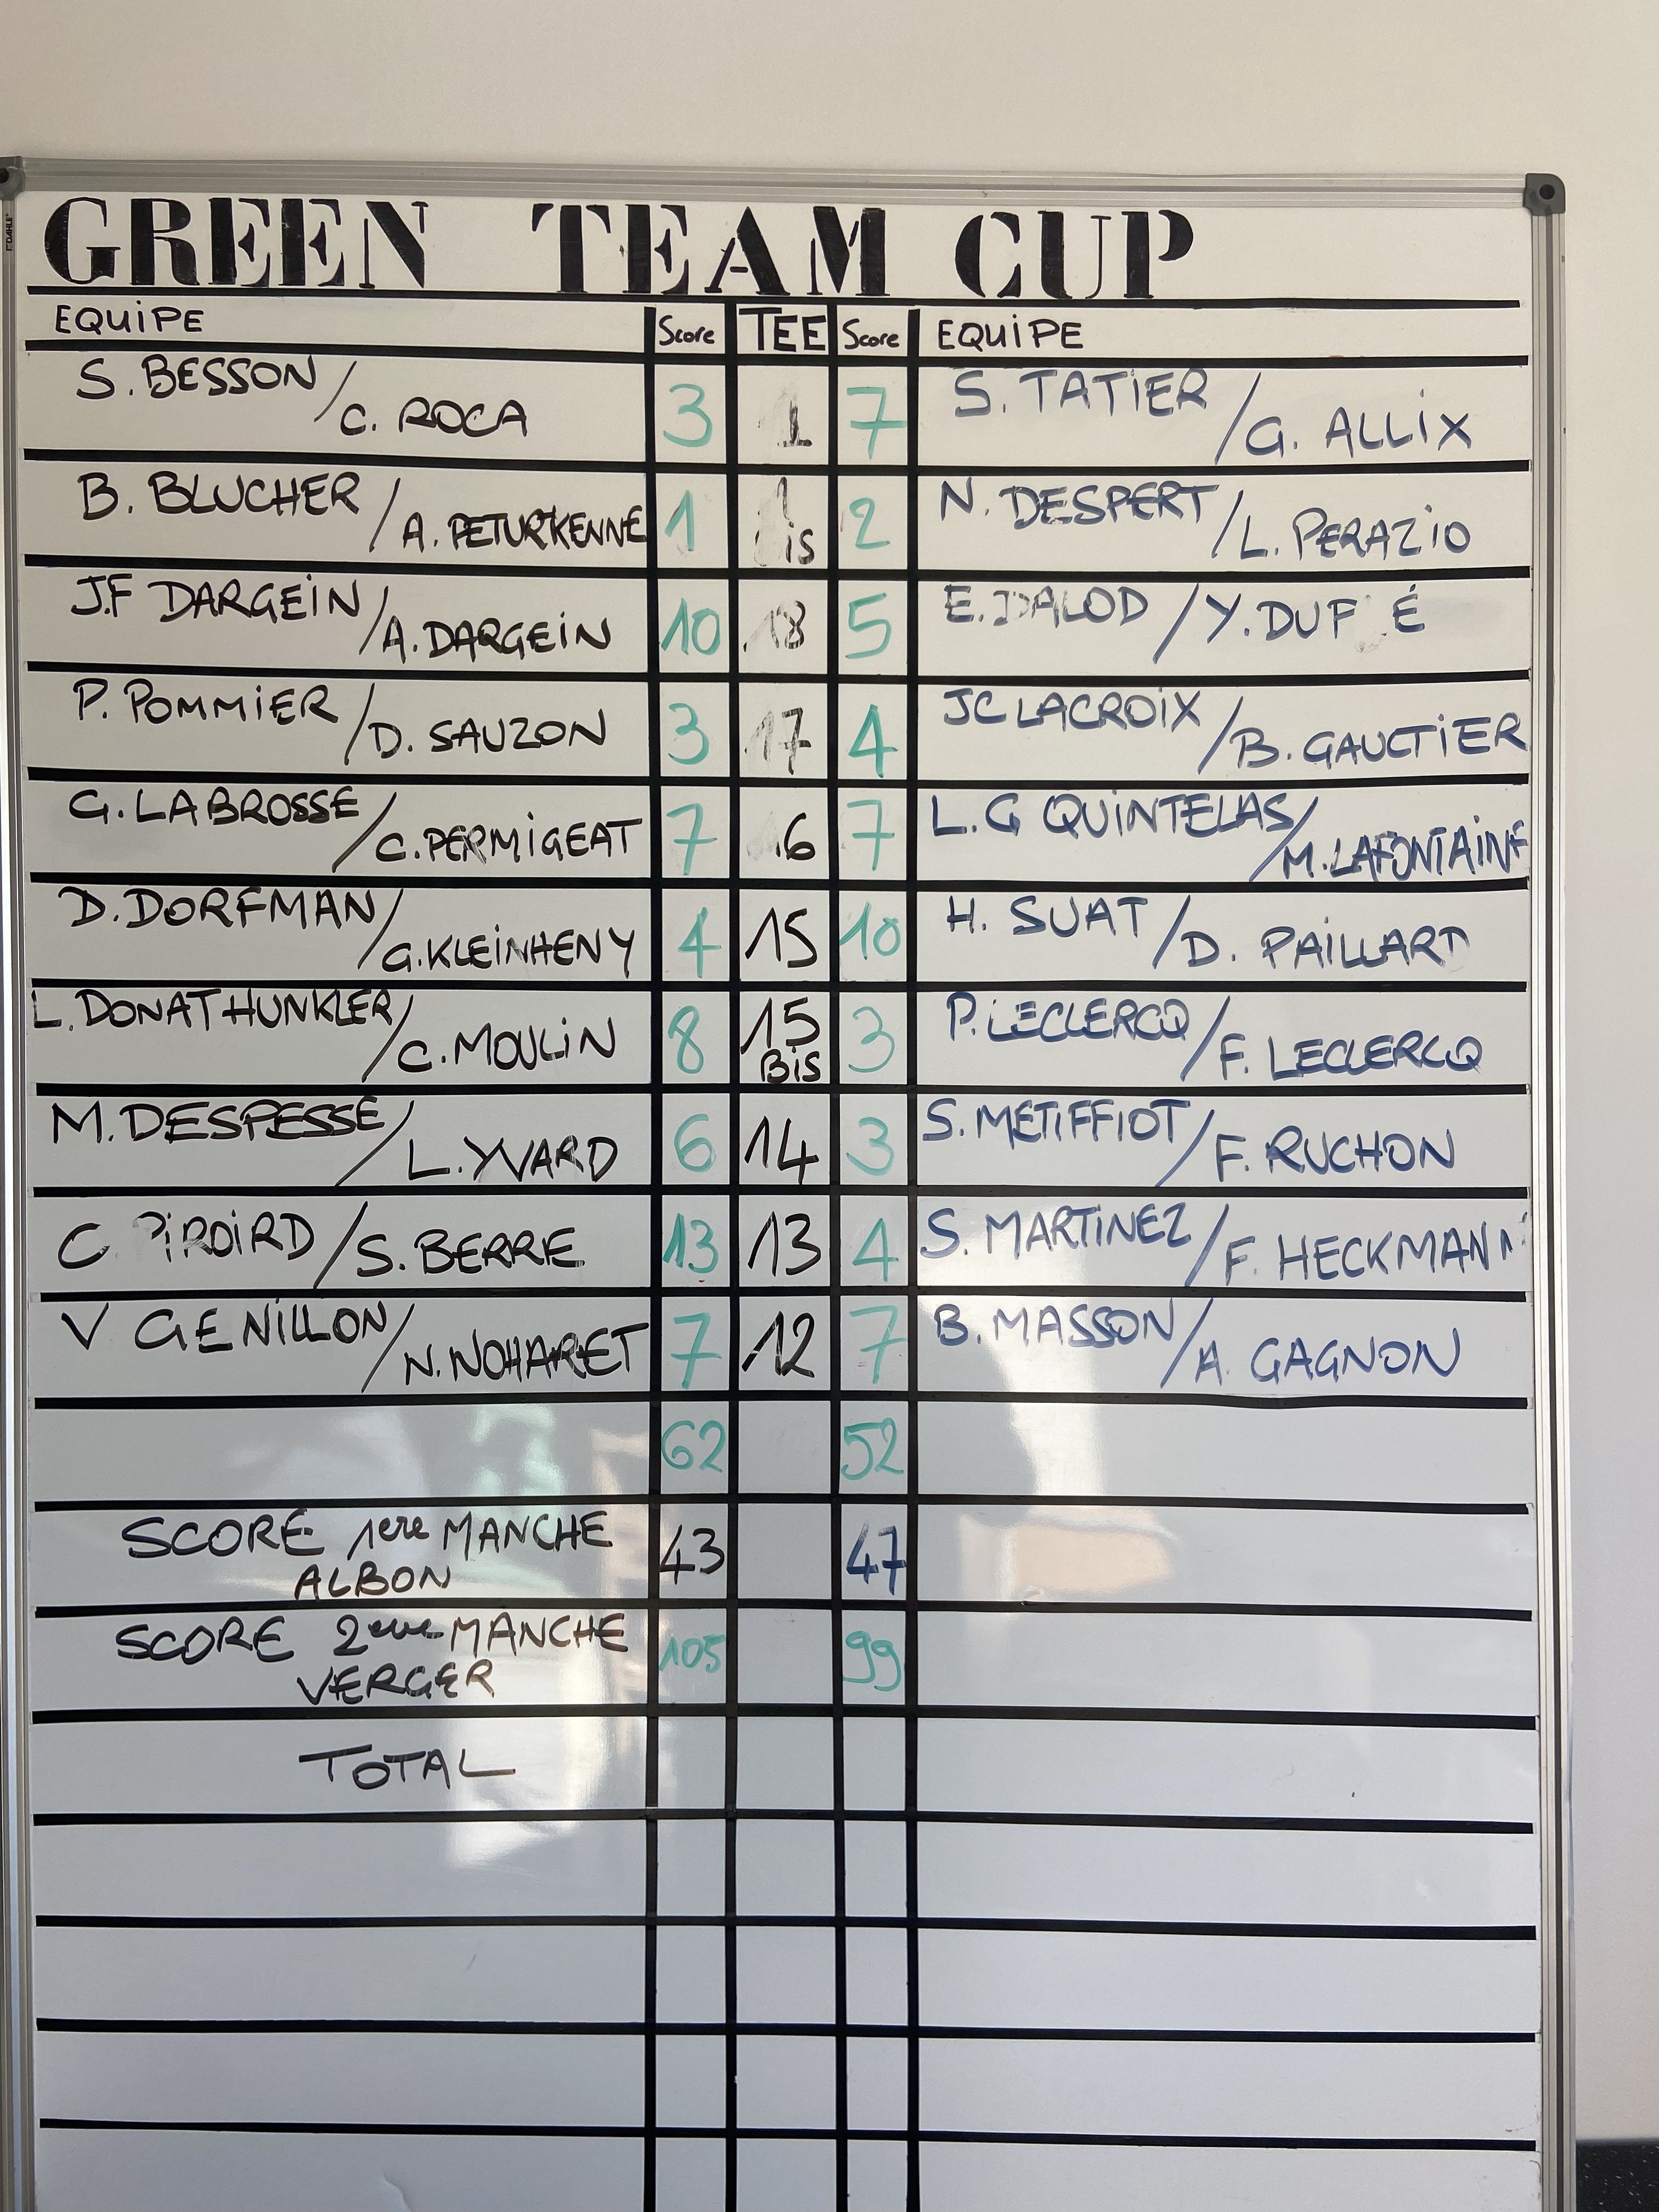 GREEN TEAM CUP
EQUIPE Score TEE Score EQUIPE
S. BESSON / C. ROCA 3 1 7 S. TATIER / G. ALLIX
B. BLUCHER / A. PETURKENNE 1 1 2 N. DESPERT / L. PERAZIO
Bis
J.F DARGEIN / A. DARGEIN 10 18 5 E. DALOD / Y. DUF É
P. POMMIER / D. SAUZON 3 17 4 JC LACROIX / B. GAUCTIER
G. LABROSSE / C. PERMIGEAT 7 6 7 L.G QUINTELAS / M. LAFONTAINE
D. DORFMAN / G. KLEINHENY 4 15 10 H. SUAT / D. PAILLARD
L. DONAT HUNKLER / C. MOULIN 8 15 3 P. LECLERCQ / F. LECLERCQ
BIS
M. DESPESSE / L. YVARD 6 14 3 S. METIFFIOT / F. RUCHON
C PIROIRD / S. BERRE 13 13 4 S. MARTINEZ / F. HECKMANN
V GENILLON / N. NOHARET 7 12 7 B. MASSON / A. GAGNON
62 52
SCORE 1ere MANCHE 43 47
ALBON
SCORE 2eme MANCHE 105 99
VERGER
TOTAL